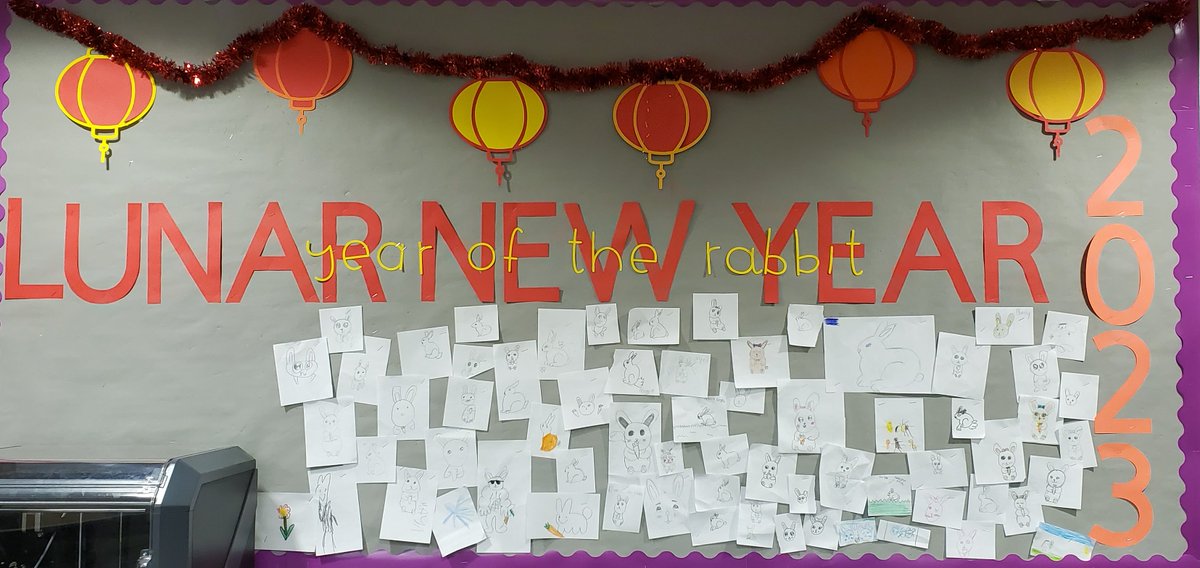 LUNAR NEW YEAR
year of the rabbit
2023